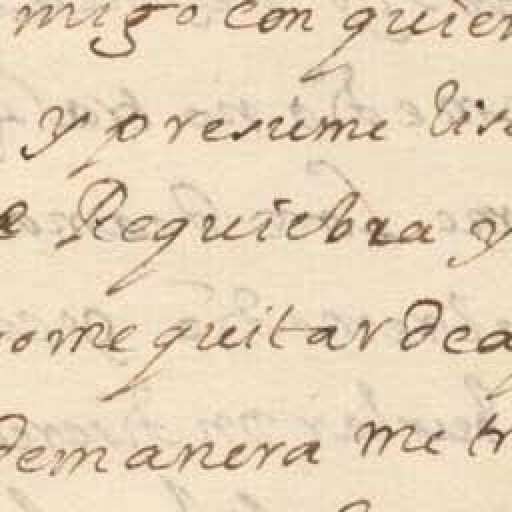 migo con quien
y presume
e Requiebra y
ome quitar de a
de manera me tr